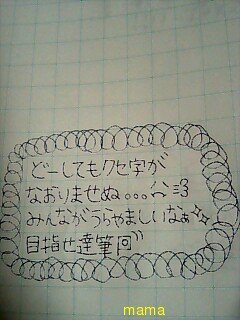 どーしてもクセ字が
なおりませぬ。。。
みんながうらやましいなぁ
目指せ達筆
mama